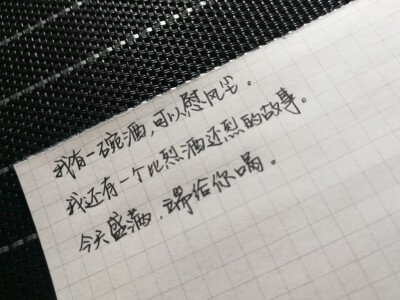 我有一碗酒，可以慰风尘。
我还有一个比烈酒还烈的故事。
今天盛满，端给你喝。